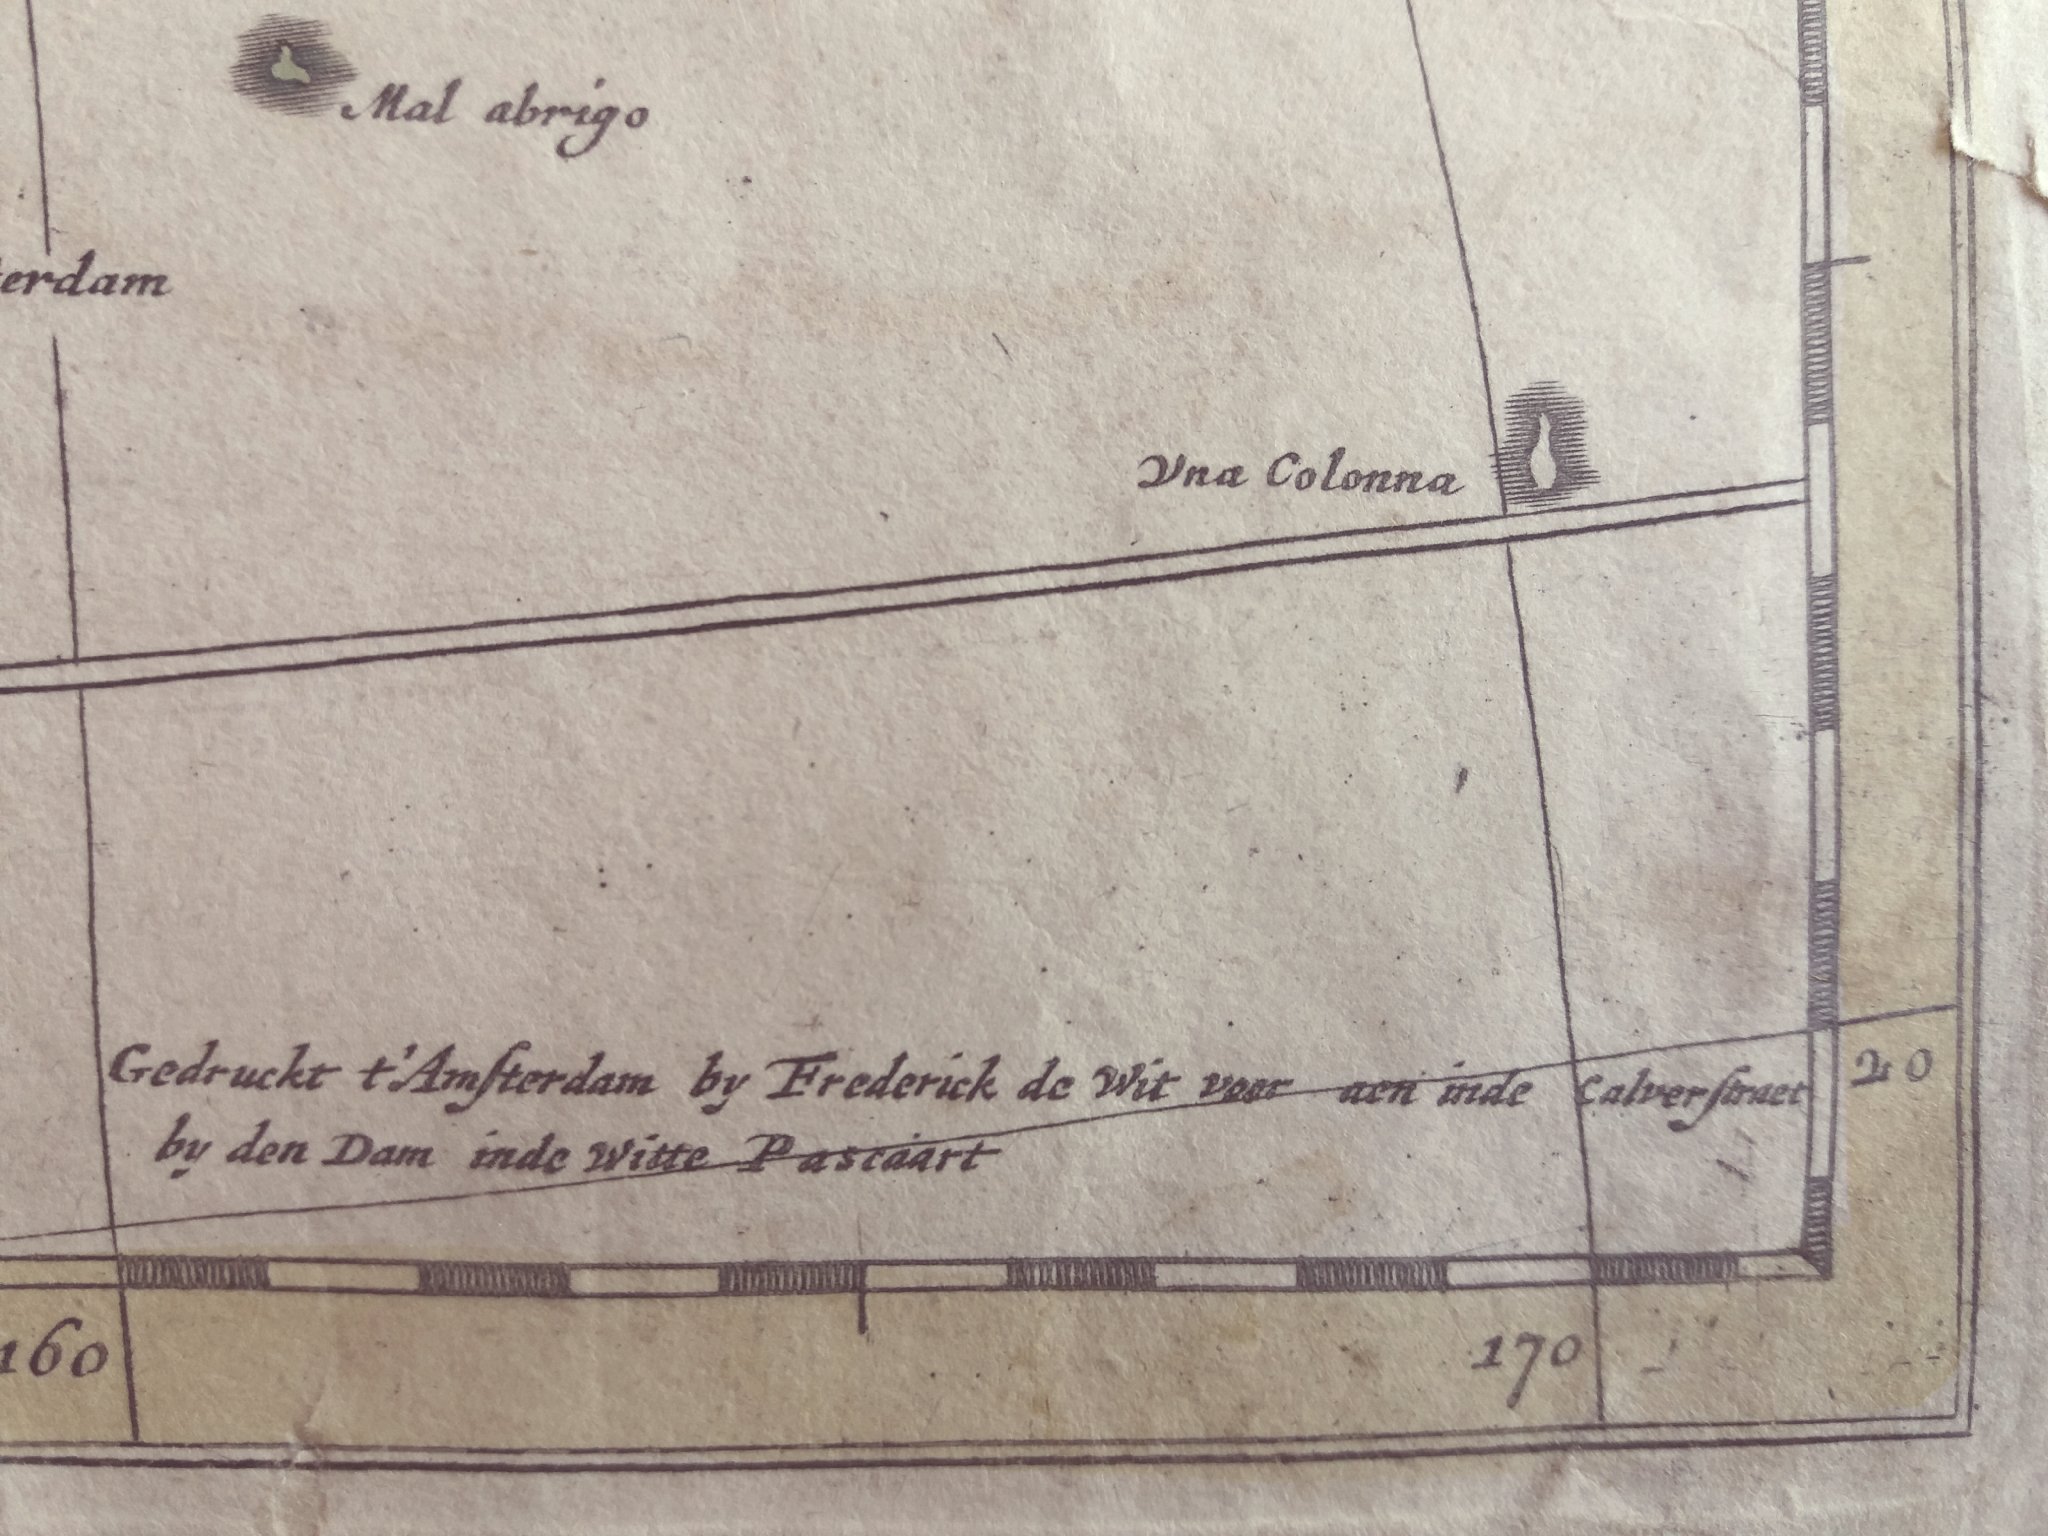 Mal abrigo
terdam
Vna Colonna
Gedruckt t'Amſterdam by Frederick de Wit voor aen inde Calverſtraet
by den Dam inde Witte Pascaart
20
160
170